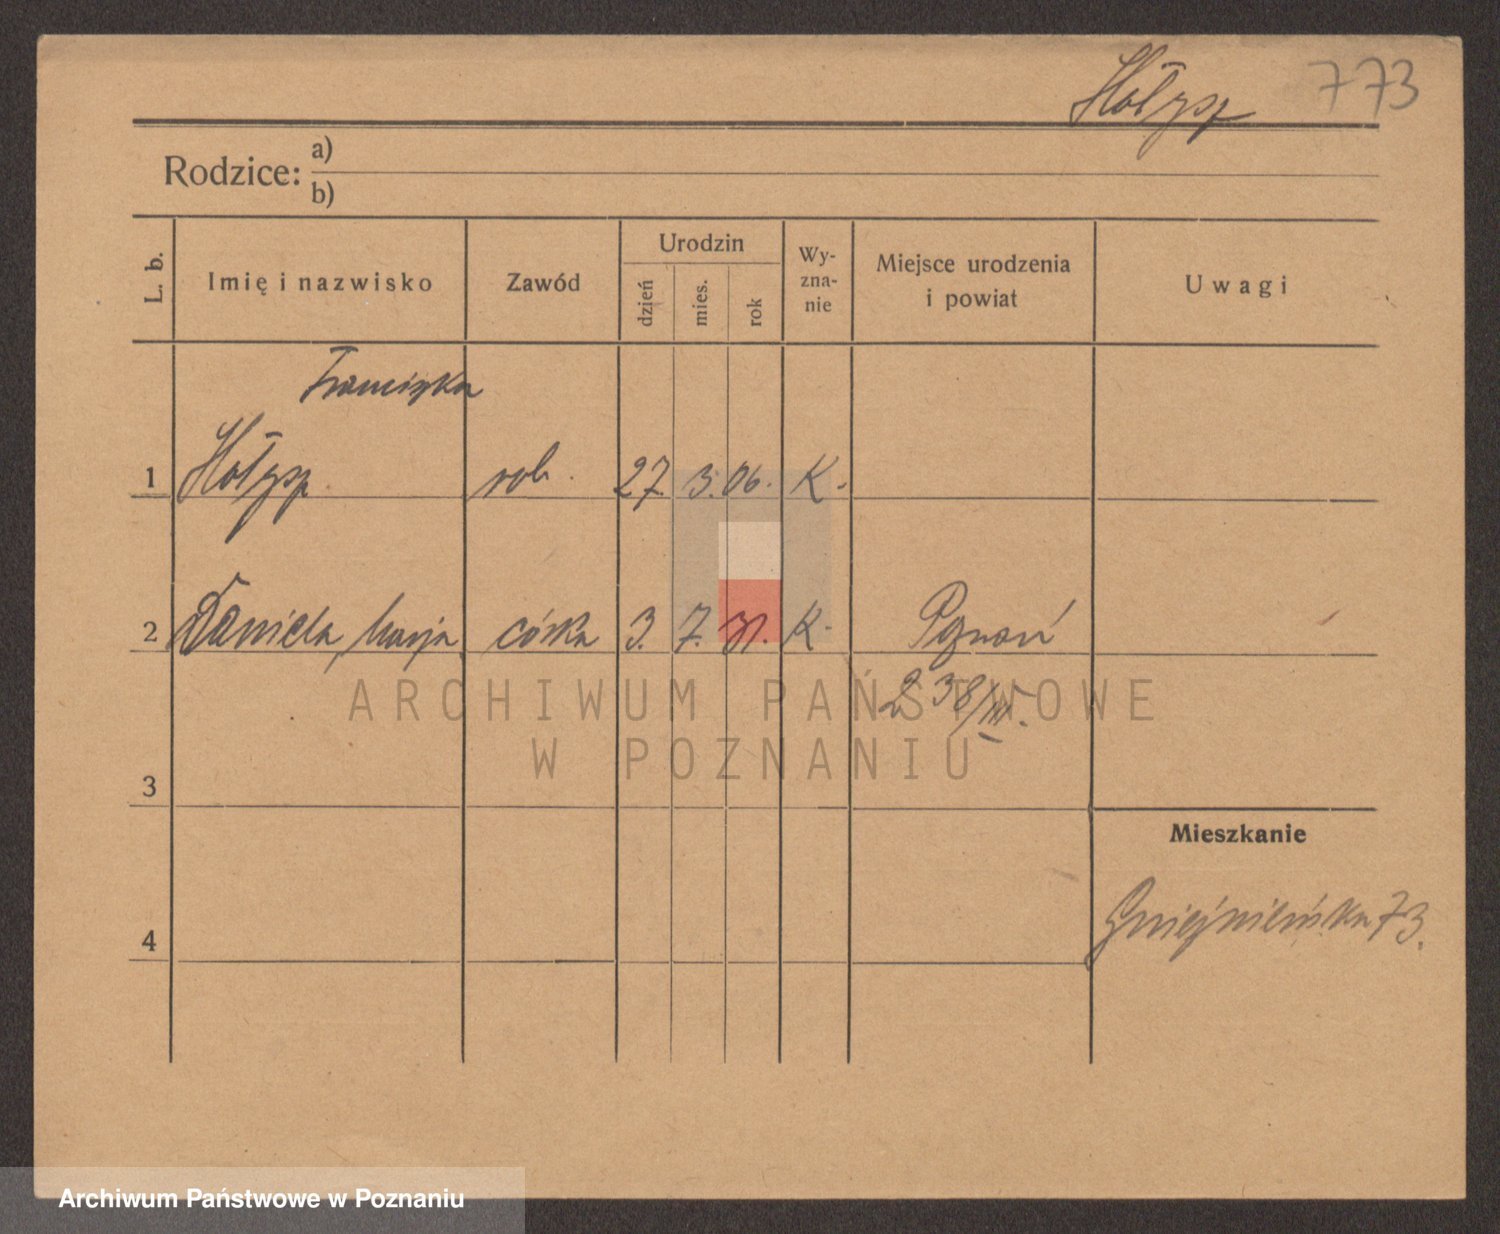 Hołysz 773
Rodzice: a)
b)
L. b.
Imię i nazwisko
Zawód
Urodzin
dzień
mies.
rok
Wy-
zna-
nie
Miejsce urodzenia
i powiat
Uwagi
Franciszka
1 Hołysz rob. 27. 3. 06. K.
2 Daniela, Marja córka 3. 7. 31. K. Poznań
2 38/III.
3
Mieszkanie
4 Gnieźnieńska 73.
ARCHIWUM PAŃSTWOWE
W POZNANIU
Archiwum Państwowe w Poznaniu